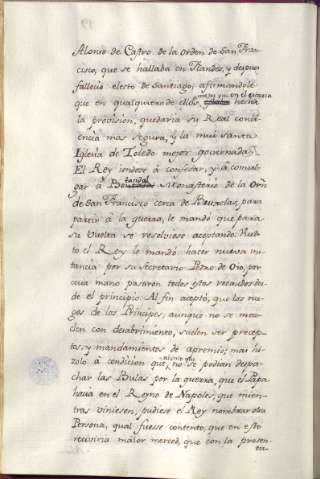 Alonso de Castro de la orden de San Fran-
cisco, que se hallaba en Flandes, y despues
fallecio electo de Santiago; afirmandole
mejor que en el guerra
que en qualquiera de ellos, hecha
la provision, quedaria su Real consci-
encia mas segura, y la mui santa
Iglesia de Toledo mejor governada.
El Rey vendose à confesar, y à comul-
gar à Monasterio de la Orn
de San Francisco cerca de Bruselas, para
partir à la guerra, le mandò que para
su vuelta se resolviese aceptando. Rus-
to el Rey le mandò hacer nueva ins-
tancia por su Secretario Pedro de por
cuia mano pasaron todos estos recaudos des-
de el principio. Al fin aceptò, que los rue-
gos de los Principes, aunque no se mez-
clen con desabrimento, suelen ser precep-
tos, y mandamientos de apremio; mas hi-
zolo à condicion que, no se podian despa-
char las Bulas por la guerra, que el Papa
hacia en el Reyno de Napoles, que mien-
tras viniesen, pudiese el Rey nombrar otra
Persona, qual fuese contento, que en esto
recivirìa maior merced, que con la presen-
ta-